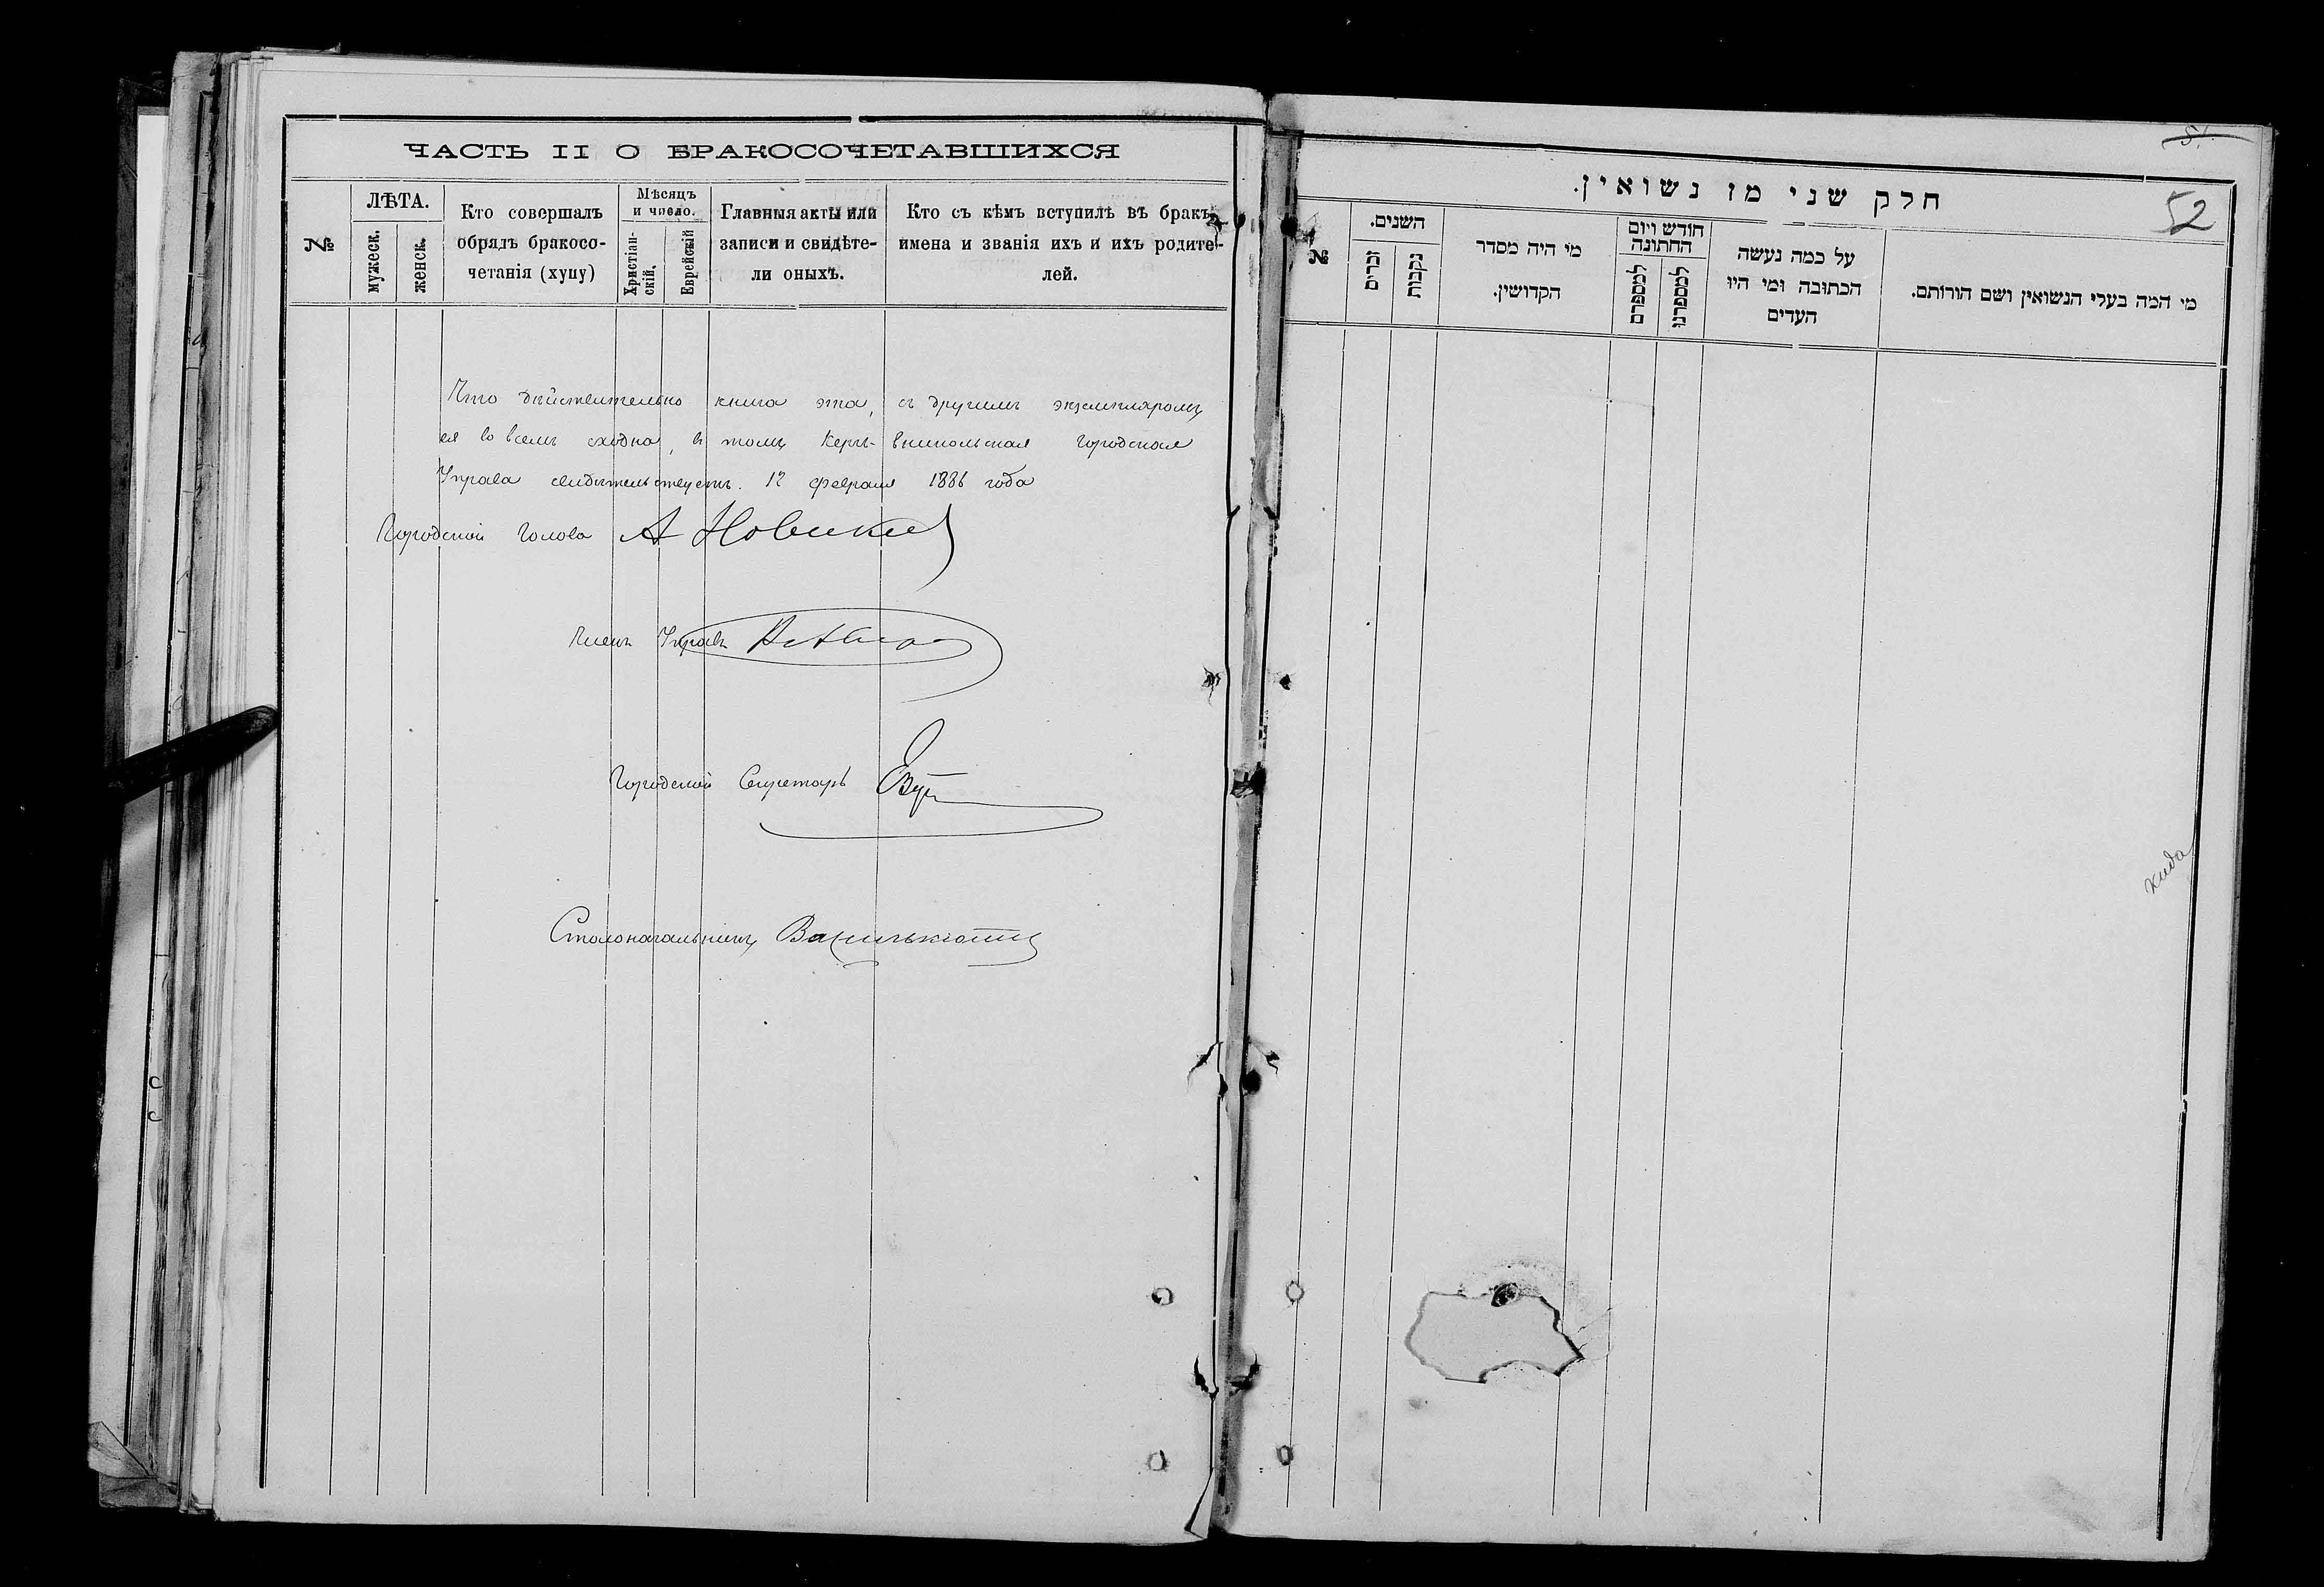 ЧАСТЬ II О БРАКОСОЧЕТАВШИХСЯ
№
ЛѢТА.
мужеск.
женск.
Кто совершалъ
обрядъ бракосо-
четанія (хупу)
Мѣсяцъ
и число.
Христіан-
скій.
Еврейскій
Главныя акты или
записи и свидѣте-
ли оныхъ.
Кто съ кѣмъ вступилъ въ бракъ,
имена и званія ихъ и ихъ родите-
лей.
Что дѣйствительно книга эта, съ другимъ экземпляромъ
ея во всемъ сходна, въ томъ Керчь-Еникольская Городская
Управа свидѣтельствуетъ. 12 февраля 1886 года
Городской Голова А Новиковъ
Членъ Управы
Городской Секретарь
Столоначальникъ
51
52
חלק שני מן נשואין.
№
השנים.
זכרים
נקבות
מי היה מסדר
הקדושין.
חודש ויום
החתונה
למספרם
למספרנו
על כמה נעשה
הכתובה ומי היו
העדים
מי המה בעלי הנשואין ושם הורותם.